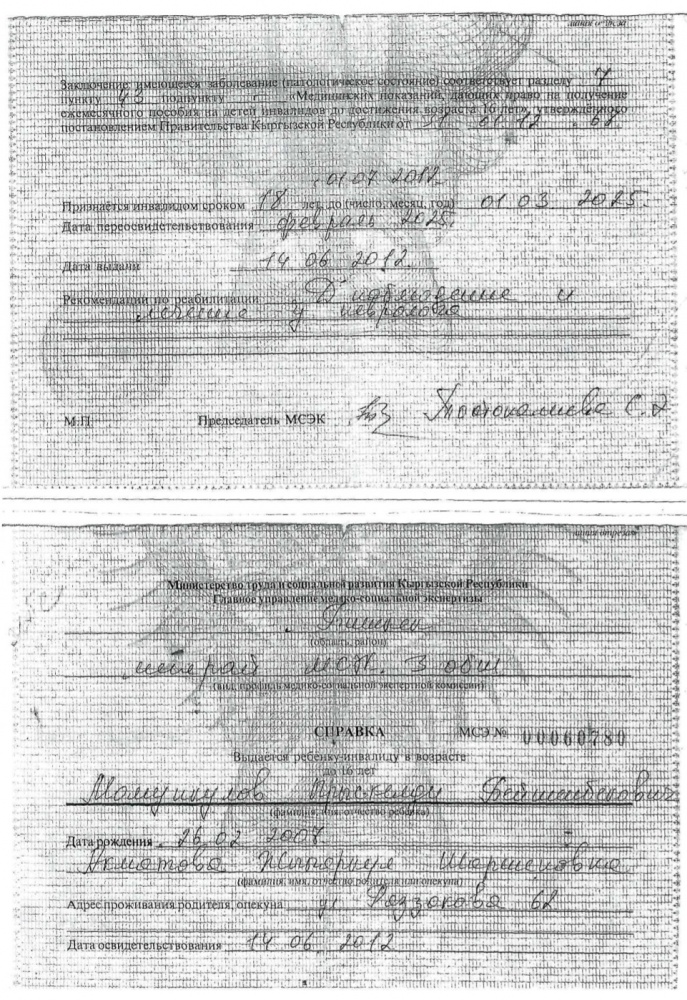 линия отреза
Заключение: имеющееся заболевание (патологическое состояние) соответствует разделу 7
пункту 43 подпункту — «Медицинских показаний, дающих право на получение
ежемесячного пособия на детей инвалидов до достижения возраста 16 лет», утверждённого
постановлением Правительства Кыргызской Республики от 31 01.12 . 68
с 01 07 2012.
Признаётся инвалидом сроком 18 лет, до (число, месяц, год) 01 03 2025.
Дата переосвидетельствования февраль 2025.
Дата выдачи 14 06 2012.
Рекомендации по реабилитации Д наблюдение и
лечение у невролога
М.П. Председатель МСЭК С.Э
линия отреза
Министерство труда и социального развития Кыргызской Республики
Главное управление медико-социальной экспертизы
г. Бишкек
(область, район)
межрай МСЭК. 3 общ
(вид, профиль медико-социальной экспертной комиссии)
СПРАВКА МСЭ № 00060780
Выдаётся ребёнку-инвалиду в возрасте
до 16 лет
Момункулов Ырыскелди Бейшенбекович
(фамилия, имя, отчество ребёнка)
Дата рождения 26 02 2007
Акматова Жыпаркул Шаршеновна
(фамилия, имя, отчество родителя или опекуна)
Адрес проживания родителя, опекуна ул Раззакова 62
Дата освидетельствования 14 06 2012